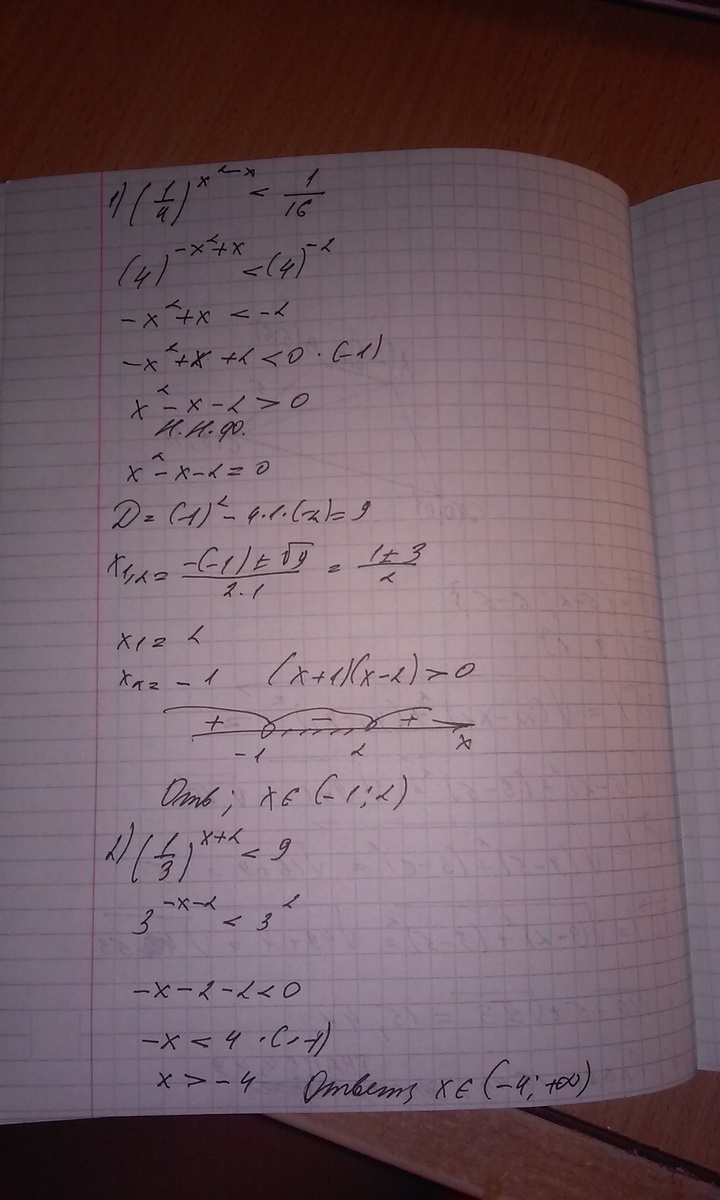 1) (1/4)^(x²-x) < 1/16
(4)^(-x²+x) < (4)^(-2)
-x²+x < -2
-x²+x+2<0 · (-1)
x²-x-2>0
Н.Н.ф.
x²-x-2=0
D=(-1)²-4·1·(-2)=9
x1,2= (-(-1)±√9)/(2·1) = (1±3)/2
x1= 2
x2= -1 (x+1)(x-2)>0
+ - +
-1 2 x
Отв; x∈(-1;2)
2) (1/3)^(x+2) < 9
3^(-x-2) < 3²
-x-2-2<0
-x<4 ·(-1)
x>-4 Ответ; x∈(-4;+∞)